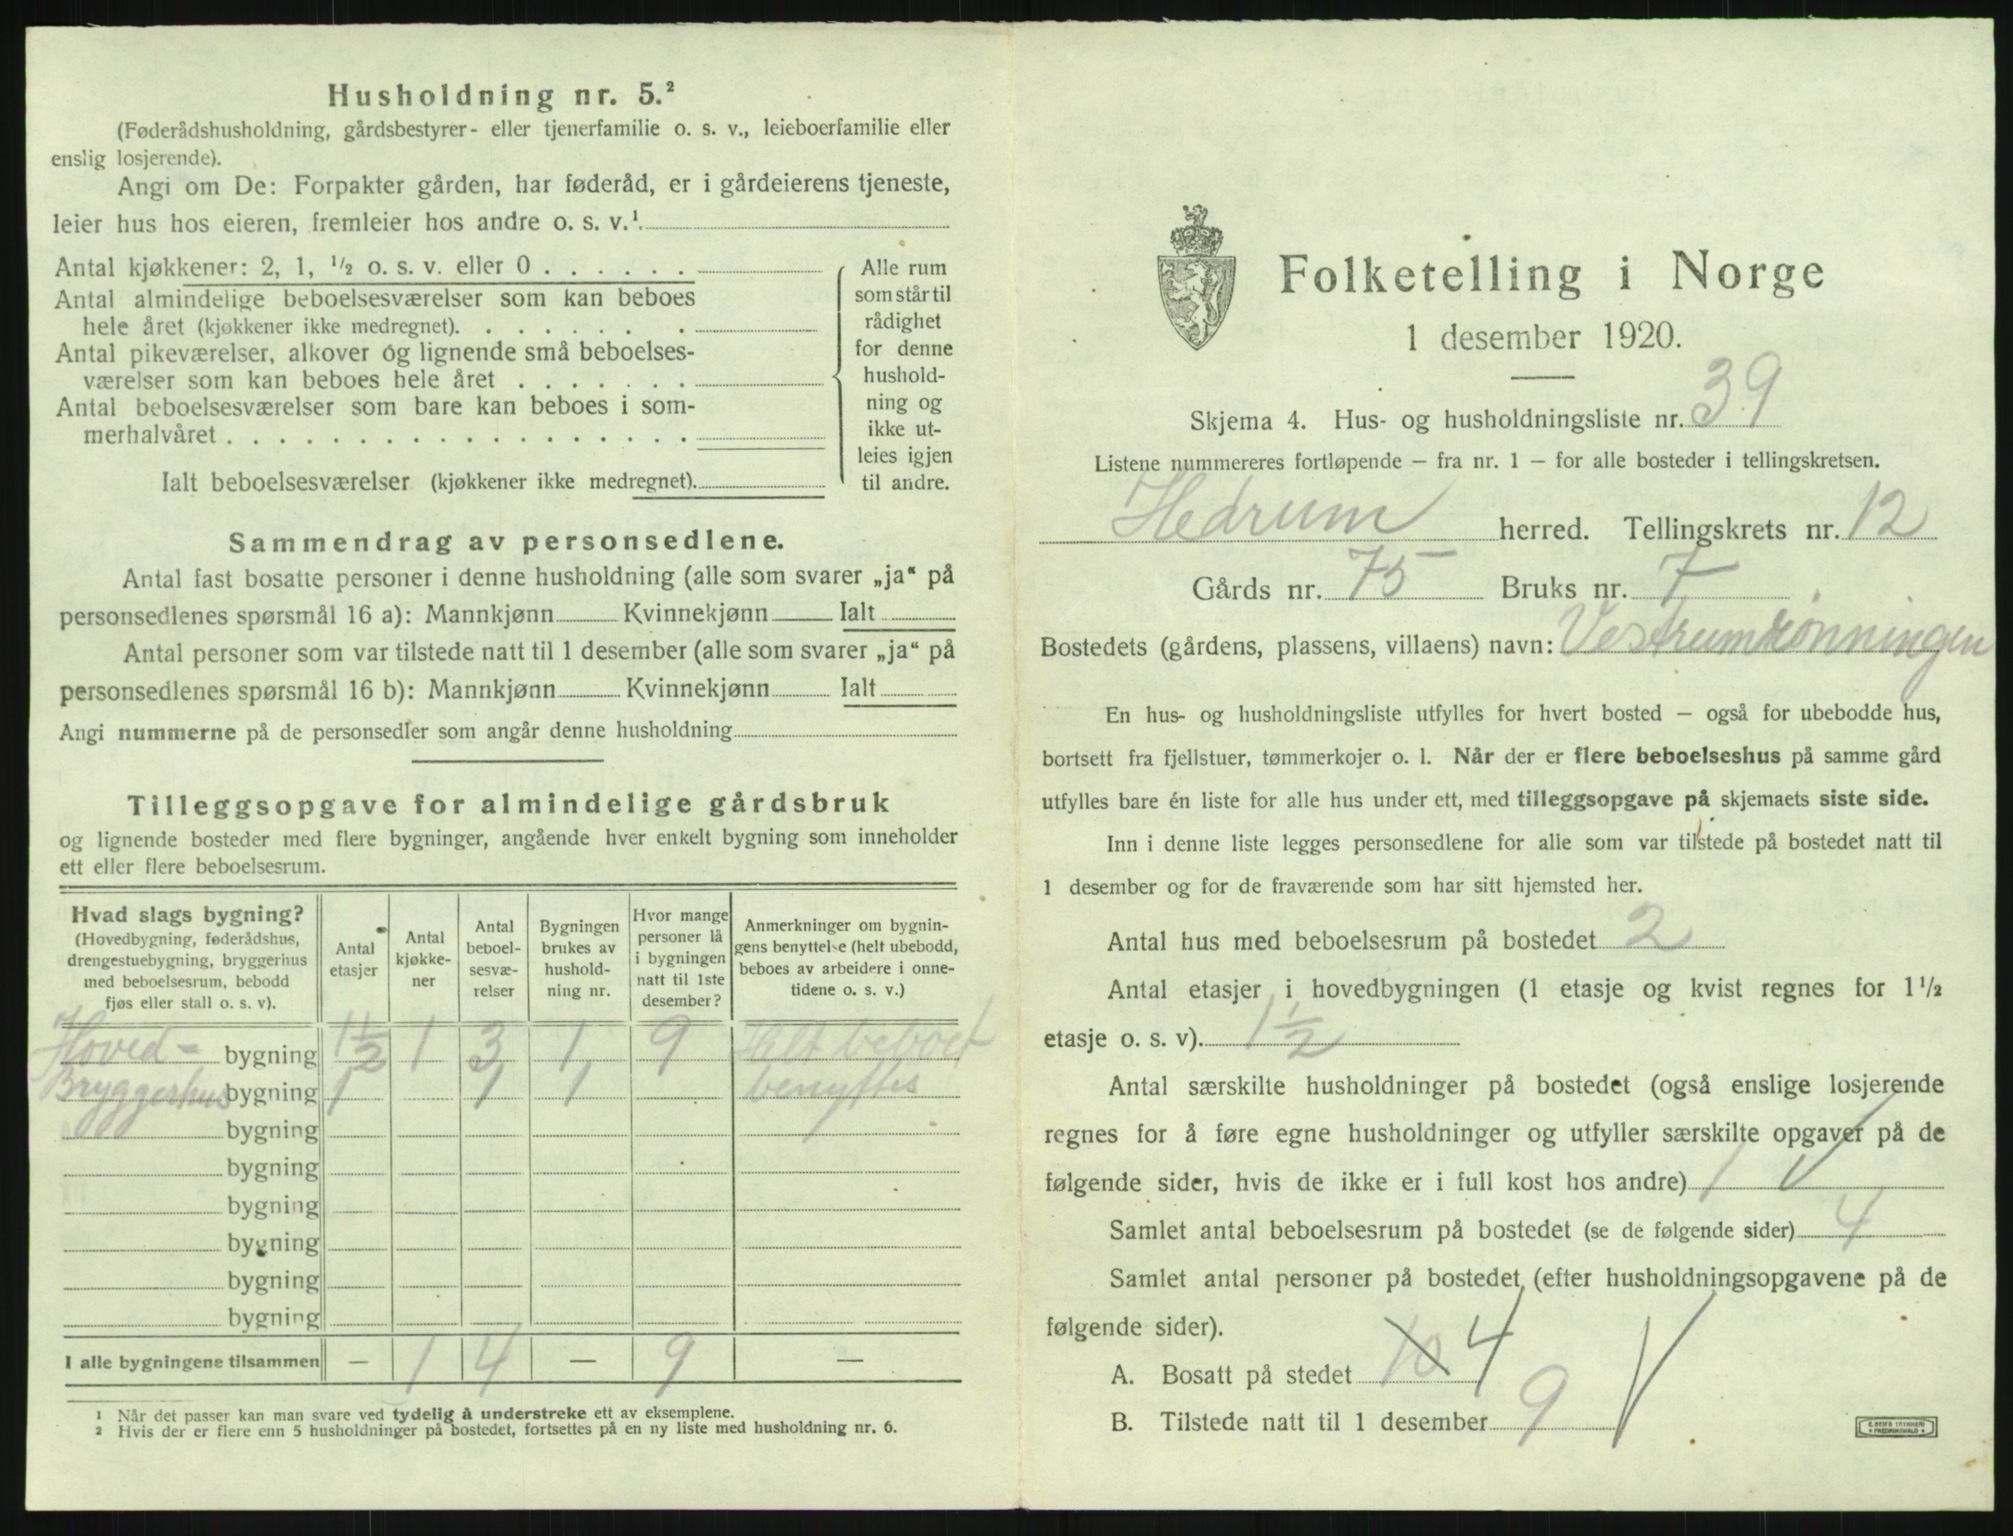 Husholdning nr. 5.²
(Føderådshusholdning, gårdsbestyrer- eller tjenerfamilie o. s. v., leieboerfamilie eller
enslig losjerende).
Angi om De: Forpakter gården, har føderåd, er i gårdeierens tjeneste,
leier hus hos eieren, fremleier hos andre o. s. v.¹
Antal kjøkkener: 2, 1, ½ o. s. v. eller 0 . . . . . .
Antal almindelige beboelsesværelser som kan beboes
hele året (kjøkkener ikke medregnet). . . . . . . .
Antal pikeværelser, alkover og lignende små beboelses-
værelser som kan beboes hele året . . . . . . .
Antal beboelsesværelser som bare kan beboes i som-
merhalvåret . . . . . . . . . . . . . . . . . .
Ialt beboelsesværelser (kjøkkener ikke medregnet).
Alle rum
som står til
rådighet
for denne
hushold-
ning og
ikke ut-
leies igjen
til andre.
Sammendrag av personsedlene.
Antal fast bosatte personer i denne husholdning (alle som svarer „ja“ på
personsedlenes spørsmål 16 a): Mannkjønn Kvinnekjønn Ialt
Antal personer som var tilstede natt til 1 desember (alle som svarer „ja“ på
personsedlenes spørsmål 16 b): Mannkjønn Kvinnekjønn Ialt
Angi nummerne på de personsedler som angår denne husholdning
Tilleggsopgave for almindelige gårdsbruk
og lignende bosteder med flere bygninger, angående hver enkelt bygning som inneholder
ett eller flere beboelsesrum.
Hvad slags bygning?
(Hovedbygning, føderådshus,
drengestuebygning, bryggerhus
med beboelsesrum, bebodd
fjøs eller stall o. s. v).
Antal
etasjer
Antal
kjøkke-
ner
Antal
beboel-
sesvæ-
relser
Bygningen
brukes av
hushold-
ning nr.
Hvor mange
personer lå
i bygningen
natt til 1ste
desember?
Anmerkninger om bygnin-
gens benyttelse (helt ubebodd,
beboes av arbeidere i onne-
tidene o. s. v.)
Hoved- bygning 1½ 1 3 1 9 beboet
Bryggerhus bygning 1 1 1 benyttes
bygning
bygning
bygning
bygning
bygning
bygning
I alle bygningene tilsammen — 1 4 — 9 —
¹ Når det passer kan man svare ved tydelig å understreke ett av eksemplene.
² Hvis der er flere enn 5 husholdninger på bostedet, fortsettes på en ny liste med husholdning nr. 6.
Folketelling i Norge
1 desember 1920.
Skjema 4. Hus- og husholdningsliste nr. 39
Listene nummereres fortløpende — fra nr. 1 — for alle bosteder i tellingskretsen.
Hedrum herred. Tellingskrets nr. 12
Gårds nr. 75 Bruks nr. 7
Bostedets (gårdens, plassens, villaens) navn: Vestrumrønningen
En hus- og husholdningsliste utfylles for hvert bosted — også for ubebodde hus,
bortsett fra fjellstuer, tømmerkojer o. l. Når der er flere beboelseshus på samme gård
utfylles bare én liste for alle hus under ett, med tilleggsopgave på skjemaets siste side.
Inn i denne liste legges personsedlene for alle som var tilstede på bostedet natt til
1 desember og for de fraværende som har sitt hjemsted her.
Antal hus med beboelsesrum på bostedet 2
Antal etasjer i hovedbygningen (1 etasje og kvist regnes for 1½
etasje o. s. v). 1½
Antal særskilte husholdninger på bostedet (også enslige losjerende
regnes for å føre egne husholdninger og utfyller særskilte opgaver på de
følgende sider, hvis de ikke er i full kost hos andre) 1
Samlet antal beboelsesrum på bostedet (se de følgende sider) 4
Samlet antal personer på bostedet (efter husholdningsopgavene på de
følgende sider).
A. Bosatt på stedet 10 4
B. Tilstede natt til 1 desember 9